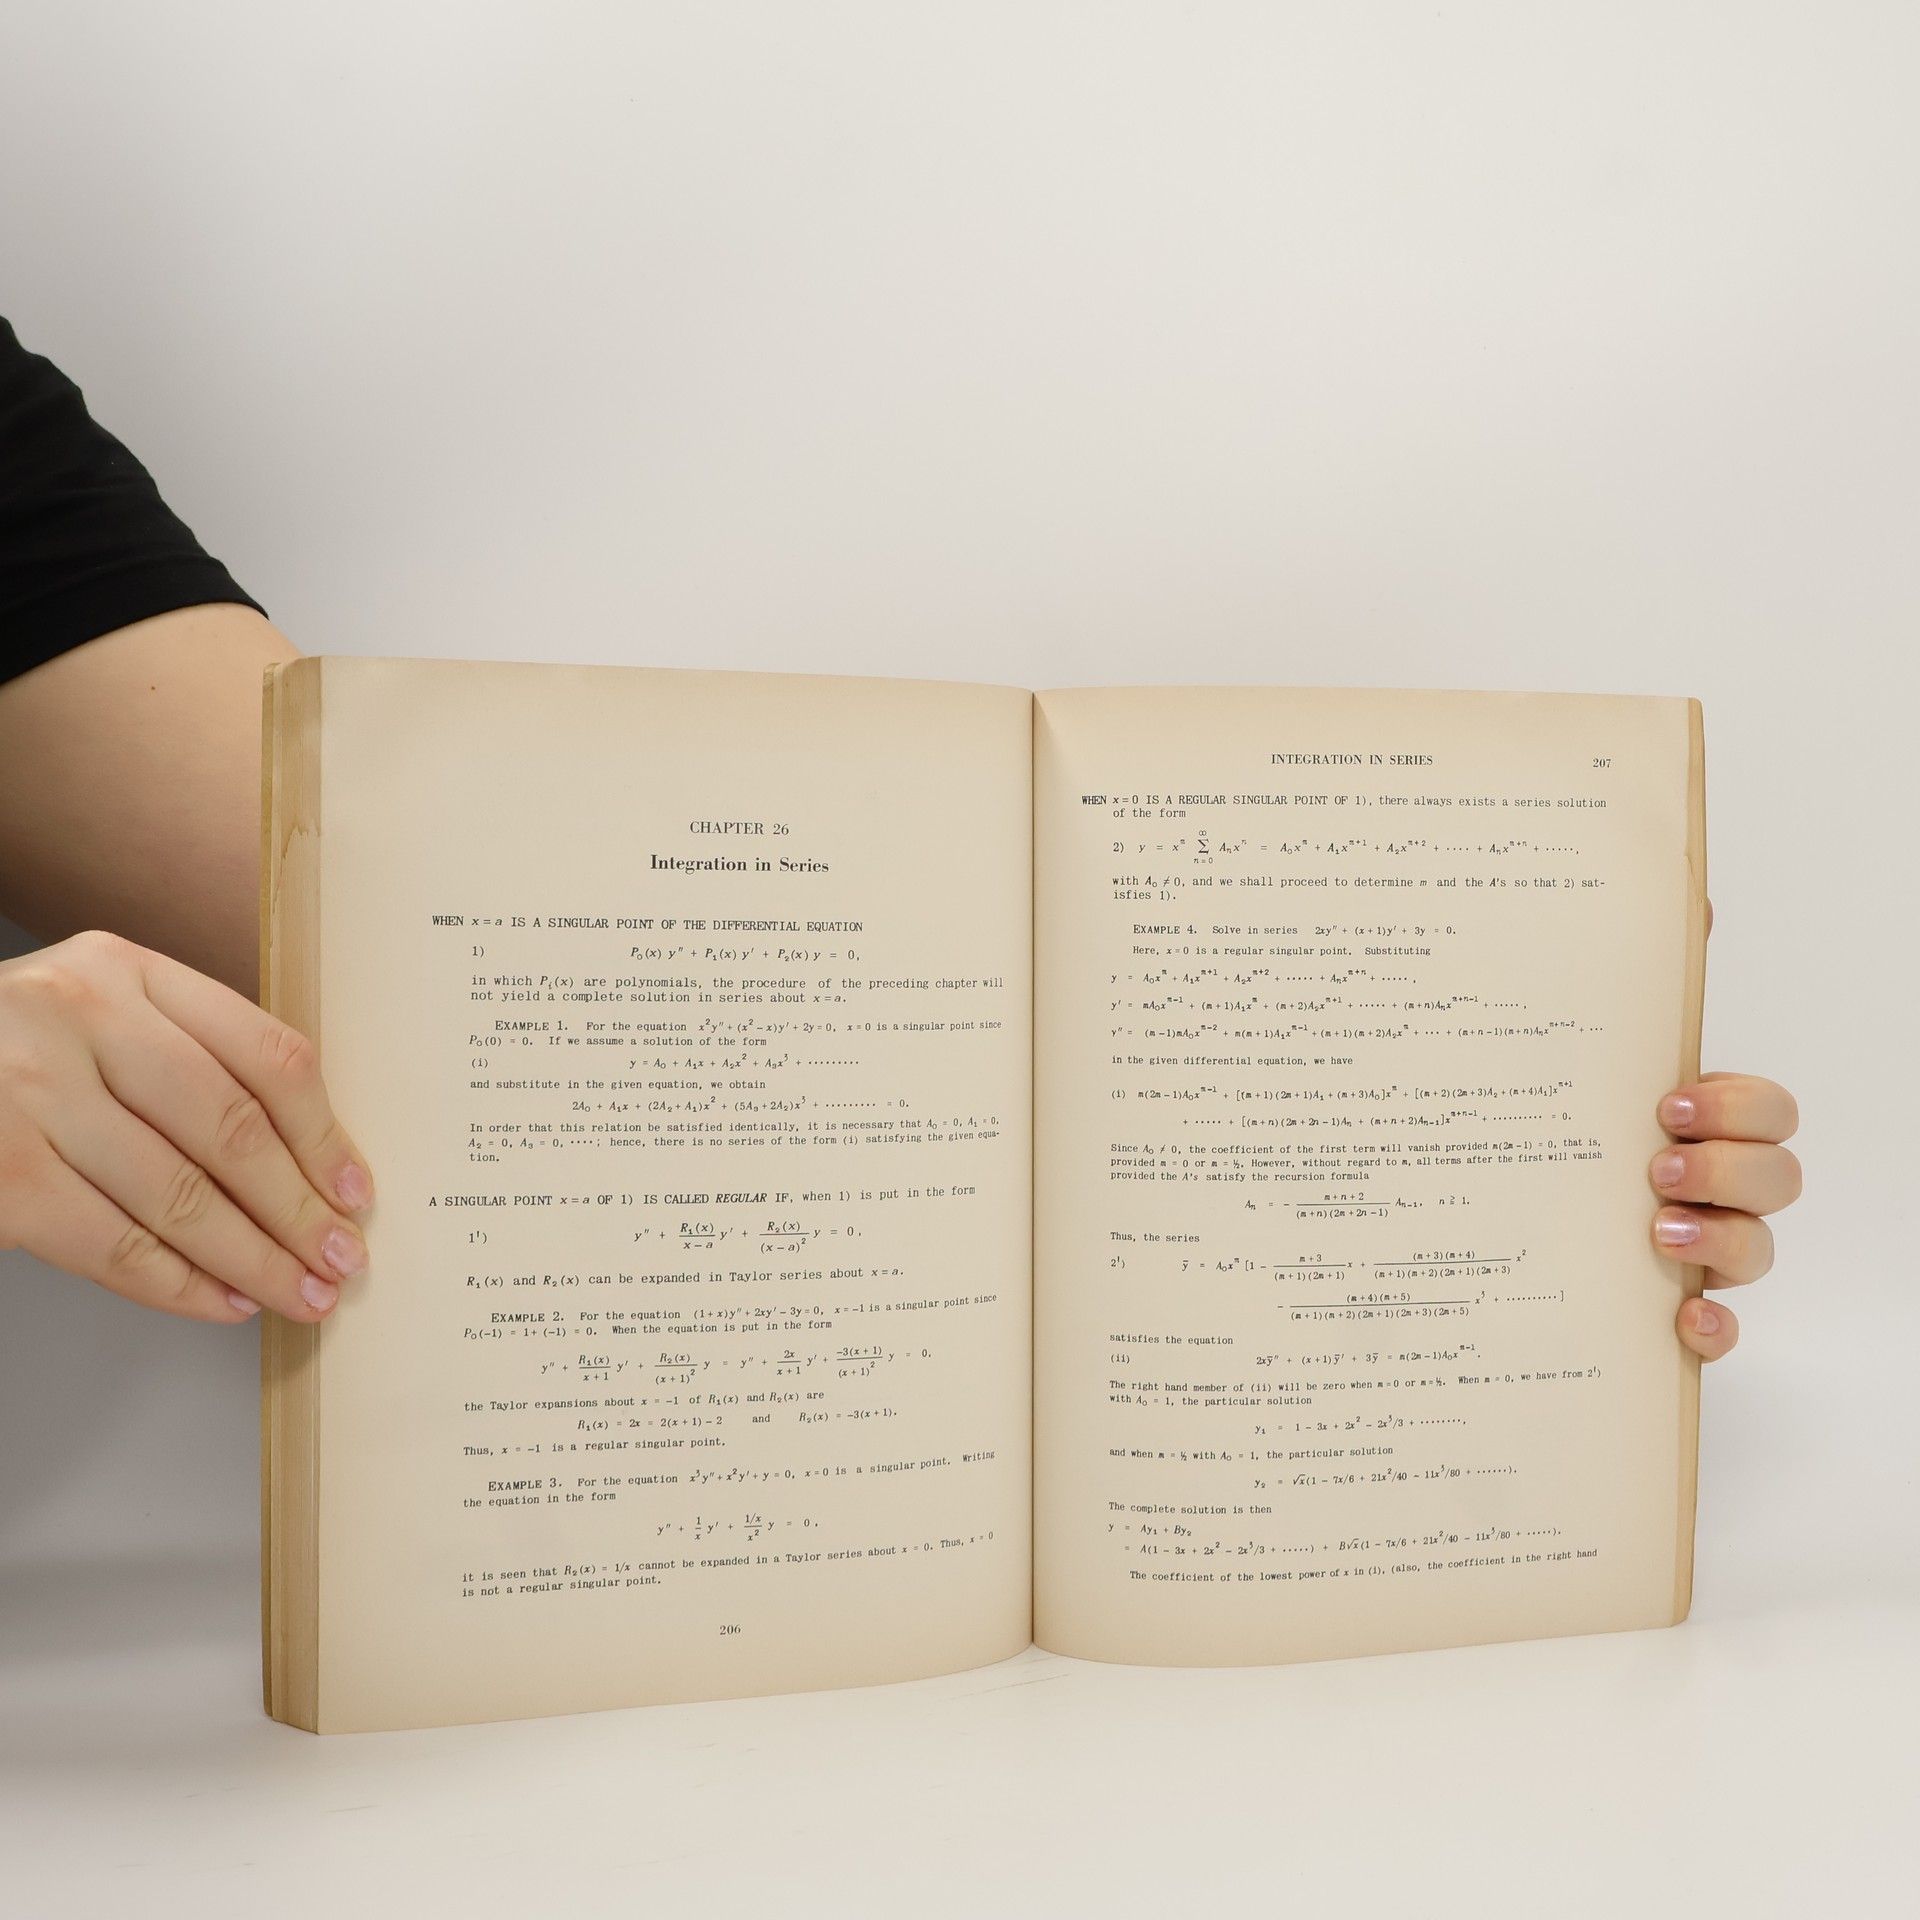 CHAPTER 26
Integration in Series
WHEN x = a IS A SINGULAR POINT OF THE DIFFERENTIAL EQUATION
1) P₀(x) y″ + P₁(x) y′ + P₂(x) y = 0,
in which Pᵢ(x) are polynomials, the procedure of the preceding chapter will
not yield a complete solution in series about x = a.
EXAMPLE 1. For the equation x²y″ + (x² − x)y′ + 2y = 0, x = 0 is a singular point since
P₀(0) = 0. If we assume a solution of the form
(i) y = A₀ + A₁x + A₂x² + A₃x³ + ·········
and substitute in the given equation, we obtain
2A₀ + A₁x + (2A₂ + A₁)x² + (5A₃ + 2A₂)x³ + ········· = 0.
In order that this relation be satisfied identically, it is necessary that A₀ = 0, A₁ = 0,
A₂ = 0, A₃ = 0, ····; hence, there is no series of the form (i) satisfying the given equa-
tion.
A SINGULAR POINT x = a OF 1) IS CALLED REGULAR IF, when 1) is put in the form
1') y″ + R₁(x)/(x − a) y′ + R₂(x)/(x − a)² y = 0,
R₁(x) and R₂(x) can be expanded in Taylor series about x = a.
EXAMPLE 2. For the equation (1 + x)y″ + 2xy′ − 3y = 0, x = −1 is a singular point since
P₀(−1) = 1 + (−1) = 0. When the equation is put in the form
y″ + R₁(x)/(x + 1) y′ + R₂(x)/(x + 1)² y = y″ + 2x/(x + 1) y′ + −3(x + 1)/(x + 1)² y = 0,
the Taylor expansions about x = −1 of R₁(x) and R₂(x) are
R₁(x) = 2x = 2(x + 1) − 2 and R₂(x) = −3(x + 1).
Thus, x = −1 is a regular singular point.
EXAMPLE 3. For the equation x³y″ + x²y′ + y = 0, x = 0 is a singular point. Writing
the equation in the form
y″ + 1/x y′ + (1/x)/x² y = 0,
it is seen that R₂(x) = 1/x cannot be expanded in a Taylor series about x = 0. Thus, x = 0
is not a regular singular point.
206
INTEGRATION IN SERIES 207
WHEN x = 0 IS A REGULAR SINGULAR POINT OF 1), there always exists a series solution
of the form
2) y = xᵐ ∑ₙ₌₀^∞ Aₙxⁿ = A₀xᵐ + A₁xᵐ⁺¹ + A₂xᵐ⁺² + ···· + Aₙxᵐ⁺ⁿ + ·····,
with A₀ ≠ 0, and we shall proceed to determine m and the A's so that 2) sat-
isfies 1).
EXAMPLE 4. Solve in series 2xy″ + (x + 1)y′ + 3y = 0.
Here, x = 0 is a regular singular point. Substituting
y = A₀xᵐ + A₁xᵐ⁺¹ + A₂xᵐ⁺² + ····· + Aₙxᵐ⁺ⁿ + ·····,
y′ = mA₀xᵐ⁻¹ + (m + 1)A₁xᵐ + (m + 2)A₂xᵐ⁺¹ + ····· + (m + n)Aₙxᵐ⁺ⁿ⁻¹ + ·····,
y″ = (m − 1)mA₀xᵐ⁻² + m(m + 1)A₁xᵐ⁻¹ + (m + 1)(m + 2)A₂xᵐ + ··· + (m + n − 1)(m + n)Aₙxᵐ⁺ⁿ⁻² + ···
in the given differential equation, we have
(i) m(2m − 1)A₀xᵐ⁻¹ + [(m + 1)(2m + 1)A₁ + (m + 3)A₀]xᵐ + [(m + 2)(2m + 3)A₂ + (m + 4)A₁]xᵐ⁺¹
+ ····· + [(m + n)(2m + 2n − 1)Aₙ + (m + n + 2)Aₙ₋₁]xᵐ⁺ⁿ⁻¹ + ·········· = 0.
Since A₀ ≠ 0, the coefficient of the first term will vanish provided m(2m − 1) = 0, that is,
provided m = 0 or m = ½. However, without regard to m, all terms after the first will vanish
provided the A's satisfy the recursion formula
Aₙ = − (m + n + 2)/((m + n)(2m + 2n − 1)) Aₙ₋₁, n ≧ 1.
Thus, the series
2') ȳ = A₀xᵐ[1 − (m + 3)/((m + 1)(2m + 1)) x + (m + 3)(m + 4)/((m + 1)(m + 2)(2m + 1)(2m + 3)) x²
− (m + 4)(m + 5)/((m + 1)(m + 2)(2m + 1)(2m + 3)(2m + 5)) x³ + ··········]
satisfies the equation
(ii) 2xȳ″ + (x + 1)ȳ′ + 3ȳ = m(2m − 1)A₀xᵐ⁻¹.
The right hand member of (ii) will be zero when m = 0 or m = ½. When m = 0, we have from 2')
with A₀ = 1, the particular solution
y₁ = 1 − 3x + 2x² − 2x³/3 + ········,
and when m = ½ with A₀ = 1, the particular solution
y₂ = √x(1 − 7x/6 + 21x²/40 − 11x³/80 + ······).
The complete solution is then
y = Ay₁ + By₂
= A(1 − 3x + 2x² − 2x³/3 + ·····) + B√x(1 − 7x/6 + 21x²/40 − 11x³/80 + ·····).
The coefficient of the lowest power of x in (i), (also, the coefficient in the right hand